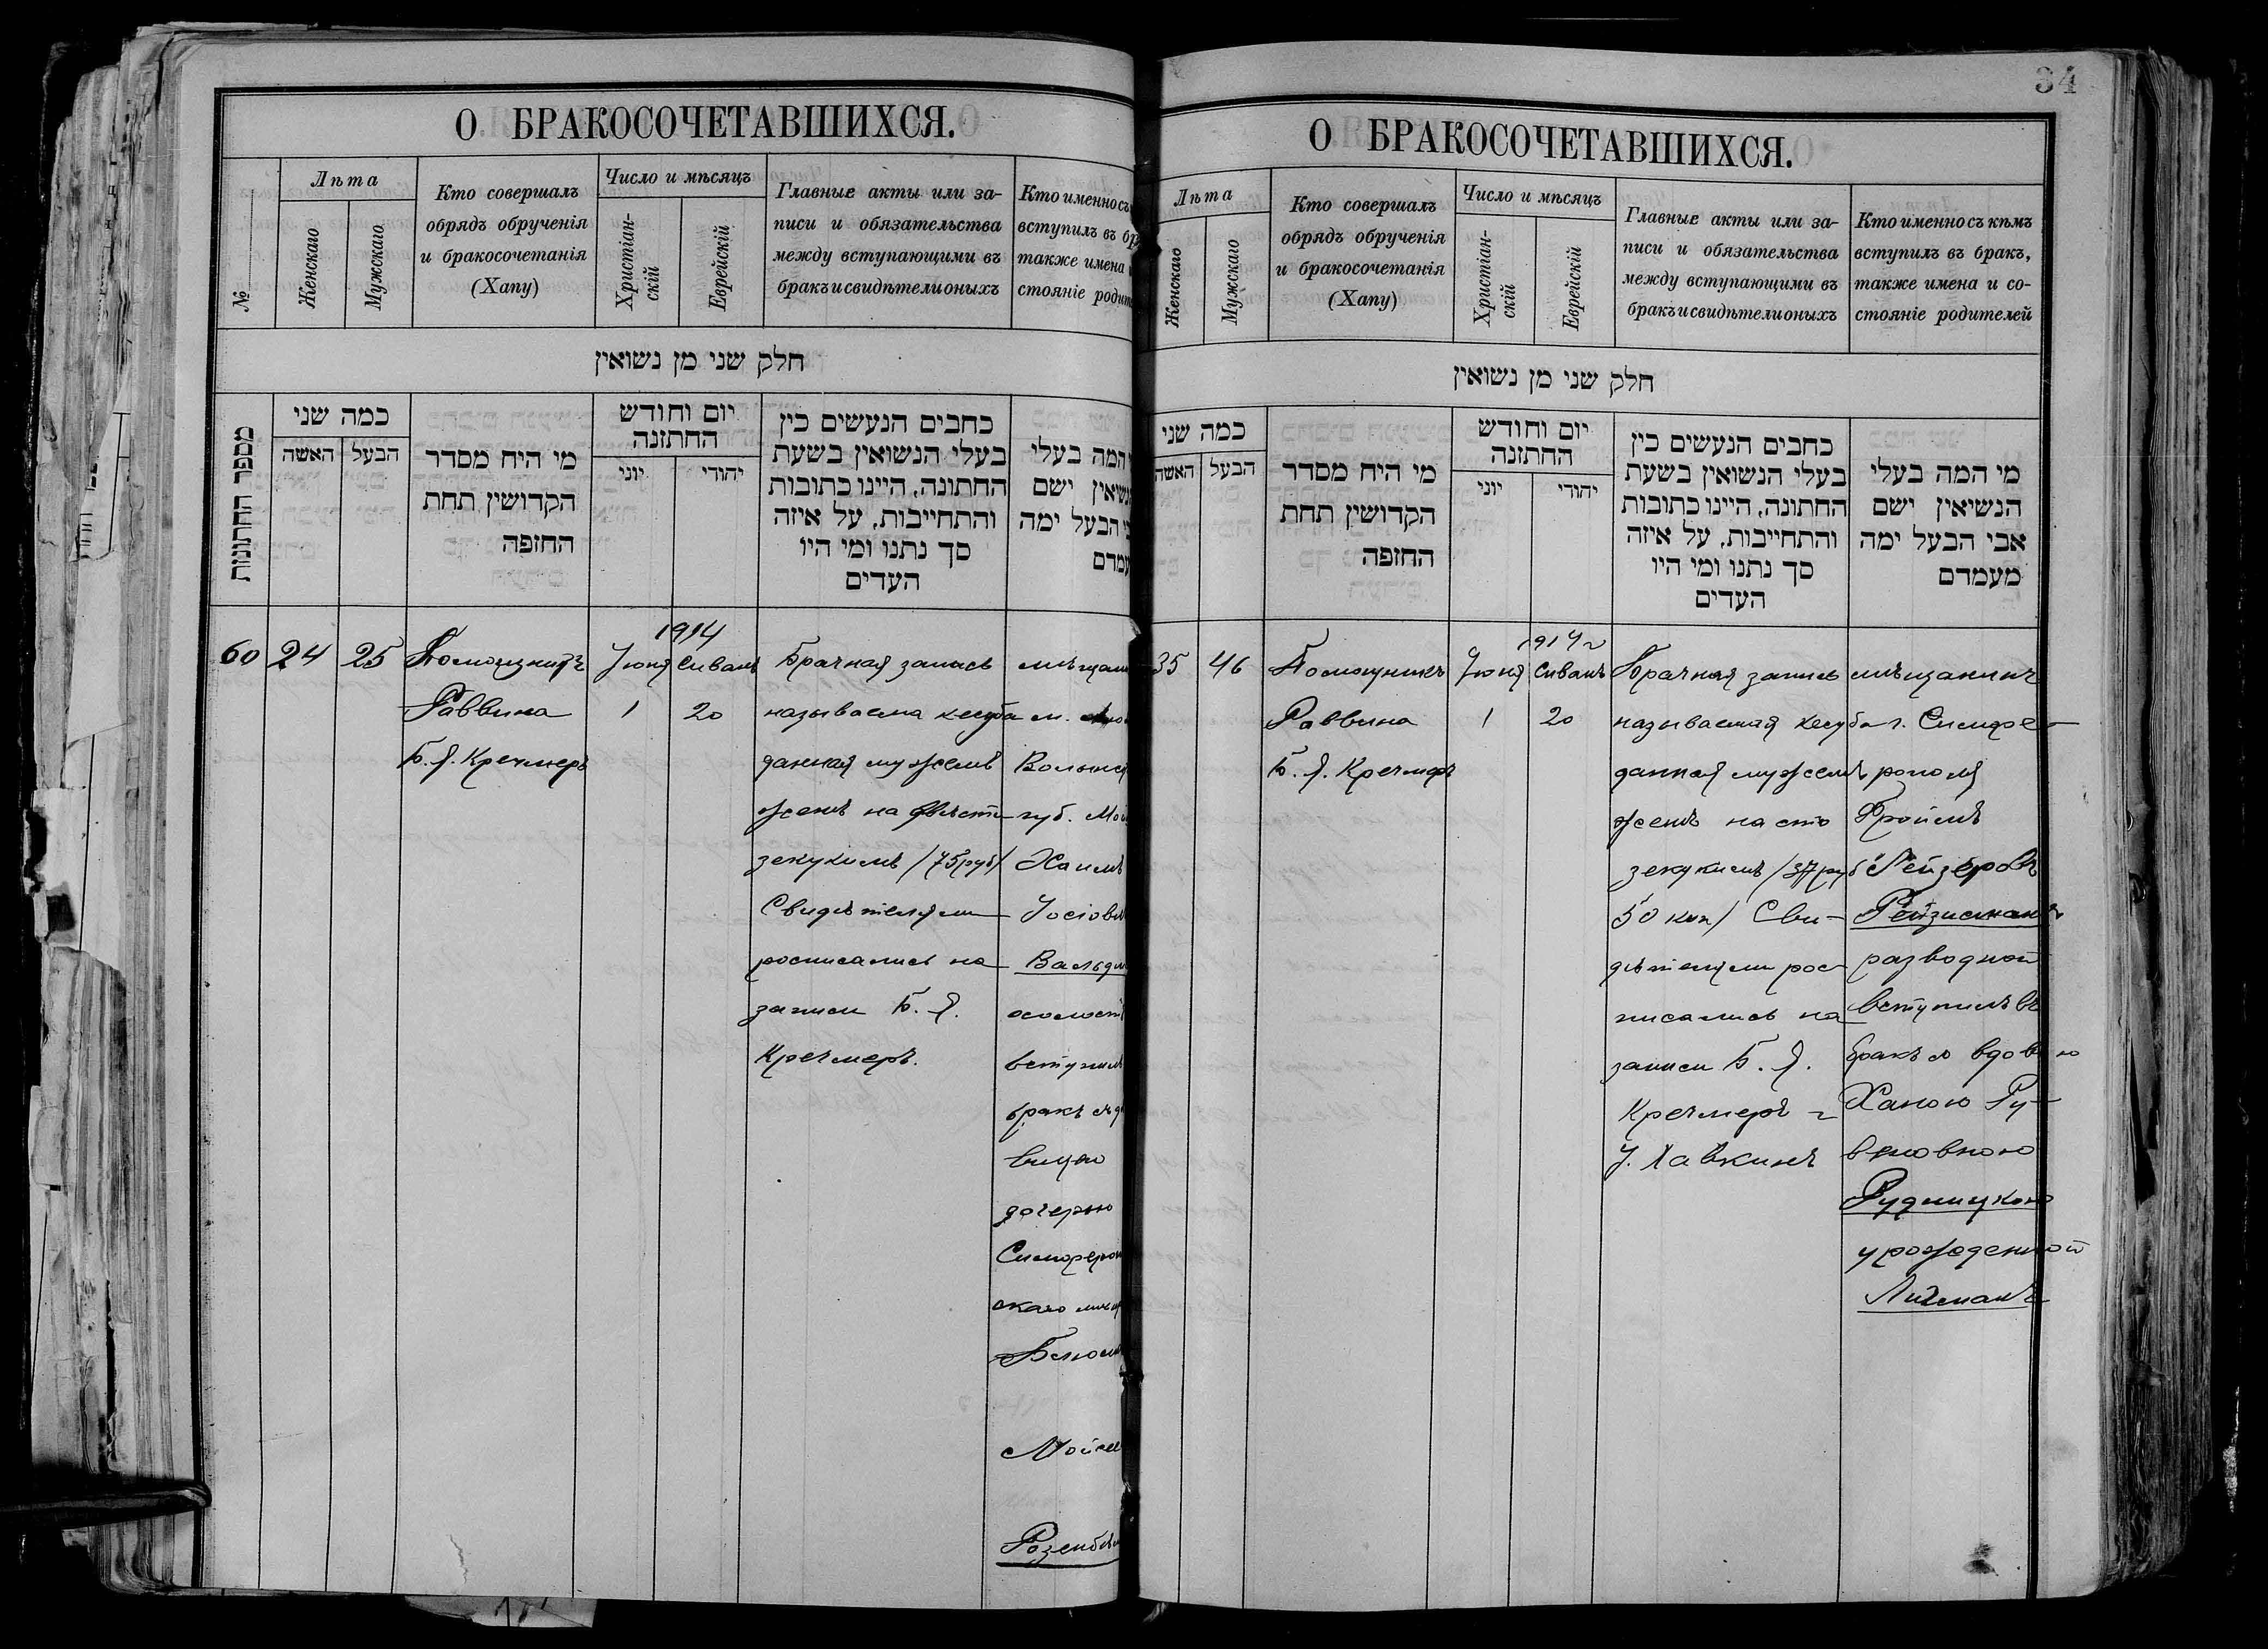 О БРАКОСОЧЕТАВШИХСЯ.
№
Лѣта
Женскаго
Мужскаго
Кто совершалъ
обрядъ обрученія
и бракосочетанія
(Хапу)
Число и мѣсяцъ
Христіан-
скій
Еврейскій
Главные акты или за-
писи и обязательства
между вступающими въ
бракъ и свидѣтели оныхъ
Кто именно съ
вступилъ въ бр
также имена
стояніе родит
חלק שני מן נשואין
מספר החתונות
כמה שני
האשה
הבעל
מי היח מסדר
הקדושין תחת
החזפה
יום וחודש
החתזנה
יוני
יהודי
כחבים הנעשים כין
בעלי הנשואין בשעת
החתונה, היינו כתובות
והתחייבות, על איזה
סך נתנו ומי היו
העדים
המה בעלי
ישם
הבעל ימה
עמדם
60
24
25
Помощникъ
Раввина
Б. Я. Кречмеръ
1914
Іюня
1
Сиванъ
20
Брачная запись
называема кесуба
данная мужемъ
женѣ на двѣсти
зекукимъ /75 руб/
Свидѣтелями
росписались на
записи Б. Я.
Кречмеръ.
мѣщан
м.
Волынск
губ. Мой
Хаимъ
Іосіов
Вальдм
холост
вступилъ
бракъ съ д
вицею
дочерью
Симфероп
скаго мѣщ
Мойсе
Розенб
34
О БРАКОСОЧЕТАВШИХСЯ.
Лѣта
Женскаго
Мужскаго
Кто совершалъ
обрядъ обрученія
и бракосочетанія
(Хапу)
Число и мѣсяцъ
Христіан-
скій
Еврейскій
Главные акты или за-
писи и обязательства
между вступающими въ
бракъ и свидѣтели оныхъ
Кто именно съ кѣмъ
вступилъ въ бракъ,
также имена и со-
стояніе родителей
חלק שני מן נשואין
כמה שני
האשה
הבעל
מי היח מסדר
הקדושין תחת
החזפה
יום וחודש
החתזנה
יוני
יהודי
כחבים הנעשים כין
בעלי הנשואין בשעת
החתונה, היינו כתובות
והתחייבות, על איזה
סך נתנו ומי היו
העדים
מי המה בעלי
הנשיאין ישם
אבי הבעל ימה
מעמדם
35
46
Помощникъ
Раввина
Б. Я. Кречмеръ
1914 г
Іюня
1
Сиванъ
20
Брачная запись
называемая кесуба
данная мужемъ
женѣ на сто
зекукимъ /37 руб
50 коп/ Сви-
дѣтелями рос-
писались на
записи Б. Я.
Кречмеръ и
І. Хавкинъ
мѣщанинъ
г. Симфе-
рополя
Фроимъ
Лейзеровъ
Рейзисманъ
разводной
вступилъ въ
бракъ съ вдовою
Ханою Ру-
виновною
Рудницкою
урожденной
Лихманъ